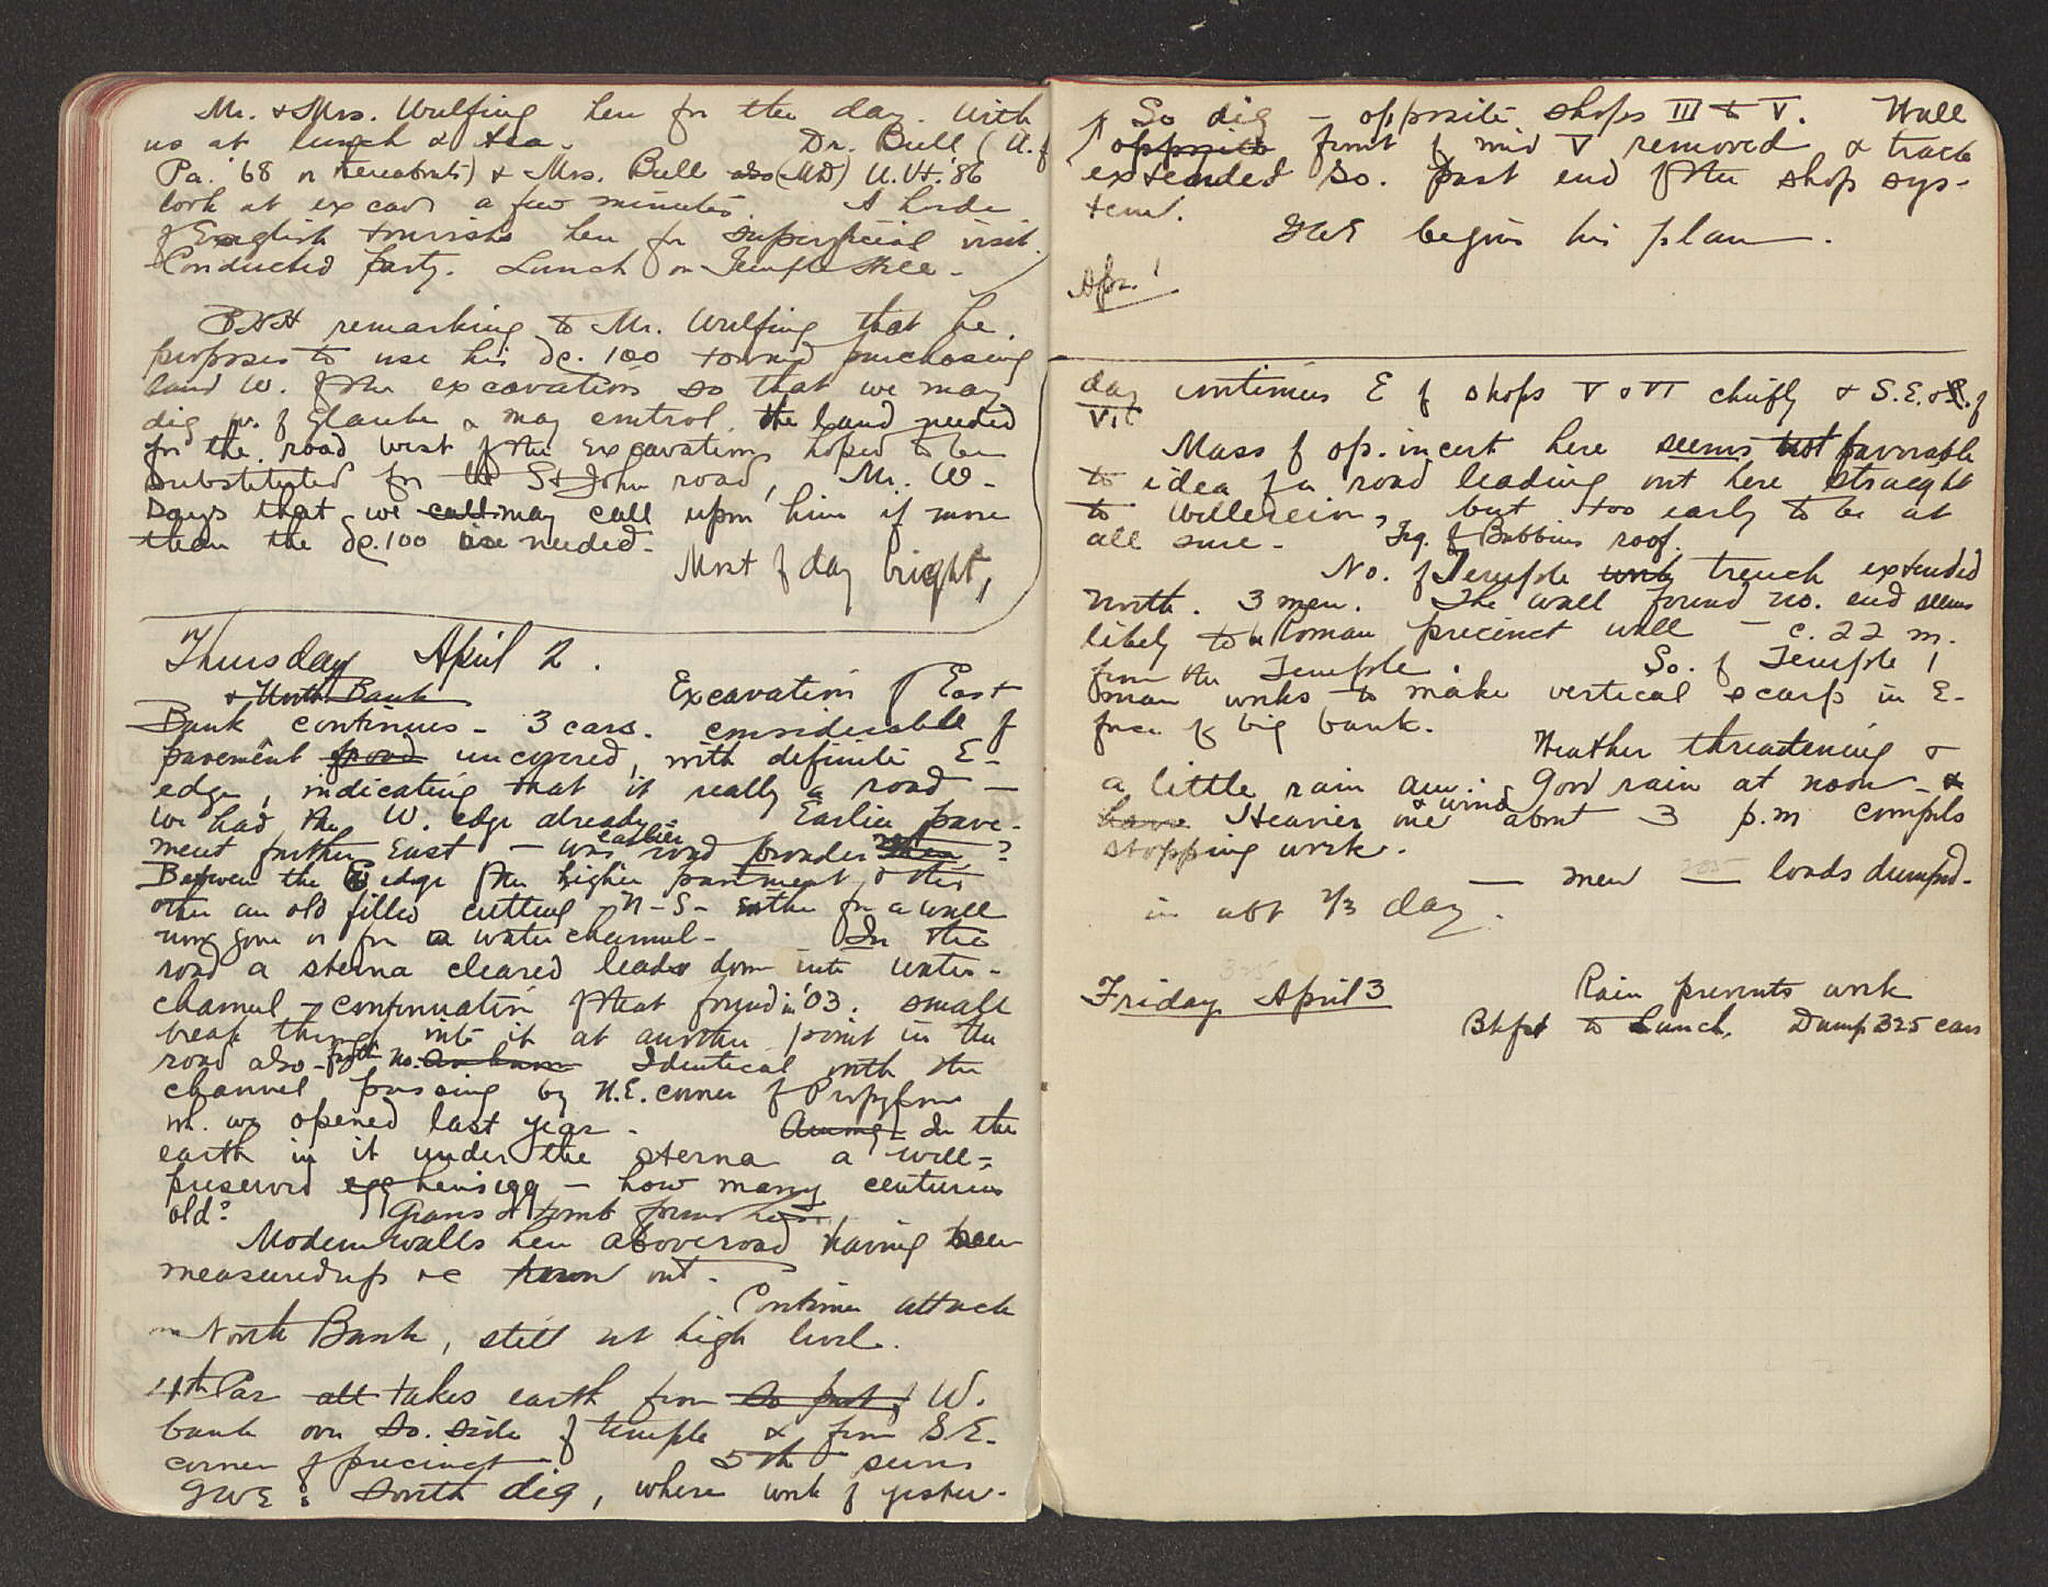 Mr. & Mrs. Wulfing here for the day. With
us at lunch & tea. Dr. Bull (U. of
Pa. '68 or thereabouts) & Mrs. Bull also (MD) '86
look at excavs a few minutes. A horde
of English tourists here for superficial visit.
Conducted party. Lunch on Temple Hill.
BHH remarking to Mr. Wulfing that he
proposes to use his dr. 100 toward purchasing
land W. of the excavation so that we may
dig w. of Glauke & may control the land needed
for the road west of the excavations hoped to be
substituted for the St John road, Mr. W.
says that we call may call upon him if more
than the dr. 100 is needed.
Most of day bright,
Thursday April 2.
& North Bank Excavation of East
Bank continues - 3 cars. Considerable of
pavement uncovered, with definite E-
edge, indicating that it really a road —
We had the W. edge already. Earlier pave-
ment further East — was earlier road broader ?
Between the E edge of the higher pavement & this
other an old filled cutting - N-S- either for a wall
now gone or for a water channel - In the
road a sterna cleared leads down into water-
channel - continuation of that found in '03. Small
break through into it at another point in the
road also - further no. Identical with the
channel passing by N.E. corner of Propylaea
wh. we opened last year. Among In the
earth in it under the sterna a well-
preserved egg hen's egg — how many centuries
old? Graves & tomb found here.
Modern walls here above road having been
measured up &c thrown out.
Continue attack
on North Bank, still at high level.
4th Par all takes earth from W.
bank on So. side of temple & from S.E.
corner of precinct 5th
GWE: South dig, where work of yester-
So dig - opposite shops III to V. Wall
opposite front of mid V removed & track
extended So. past end of the shop sys-
tem.
GWE begins his plan.
Apr. 1
day continues E of shops V & VI chiefly & S.E. & S. of
VI
Mass of op. incert here seems not favorable
to idea of a road leading out here straight
to Wellerein, but too early to be at
all sure - Frg. of Babbius roof.
No. of Temple work trench extended
North. 3 men. The wall found no. end seems
likely to be Roman precinct wall — c. 22 m.
from the Temple. So. of Temple 1
man works to make vertical scarp in E-
face of big bank.
Weather threatening &
a little rain a.m. Good rain at noon - &
have Heavier one & wind about 3 p.m compels
stopping work.
— men — 325 loads dumped.
in abt 2/3 day.
325
Friday April 3 Rain prevents work
Bkfst to Lunch. Dump 325 cars